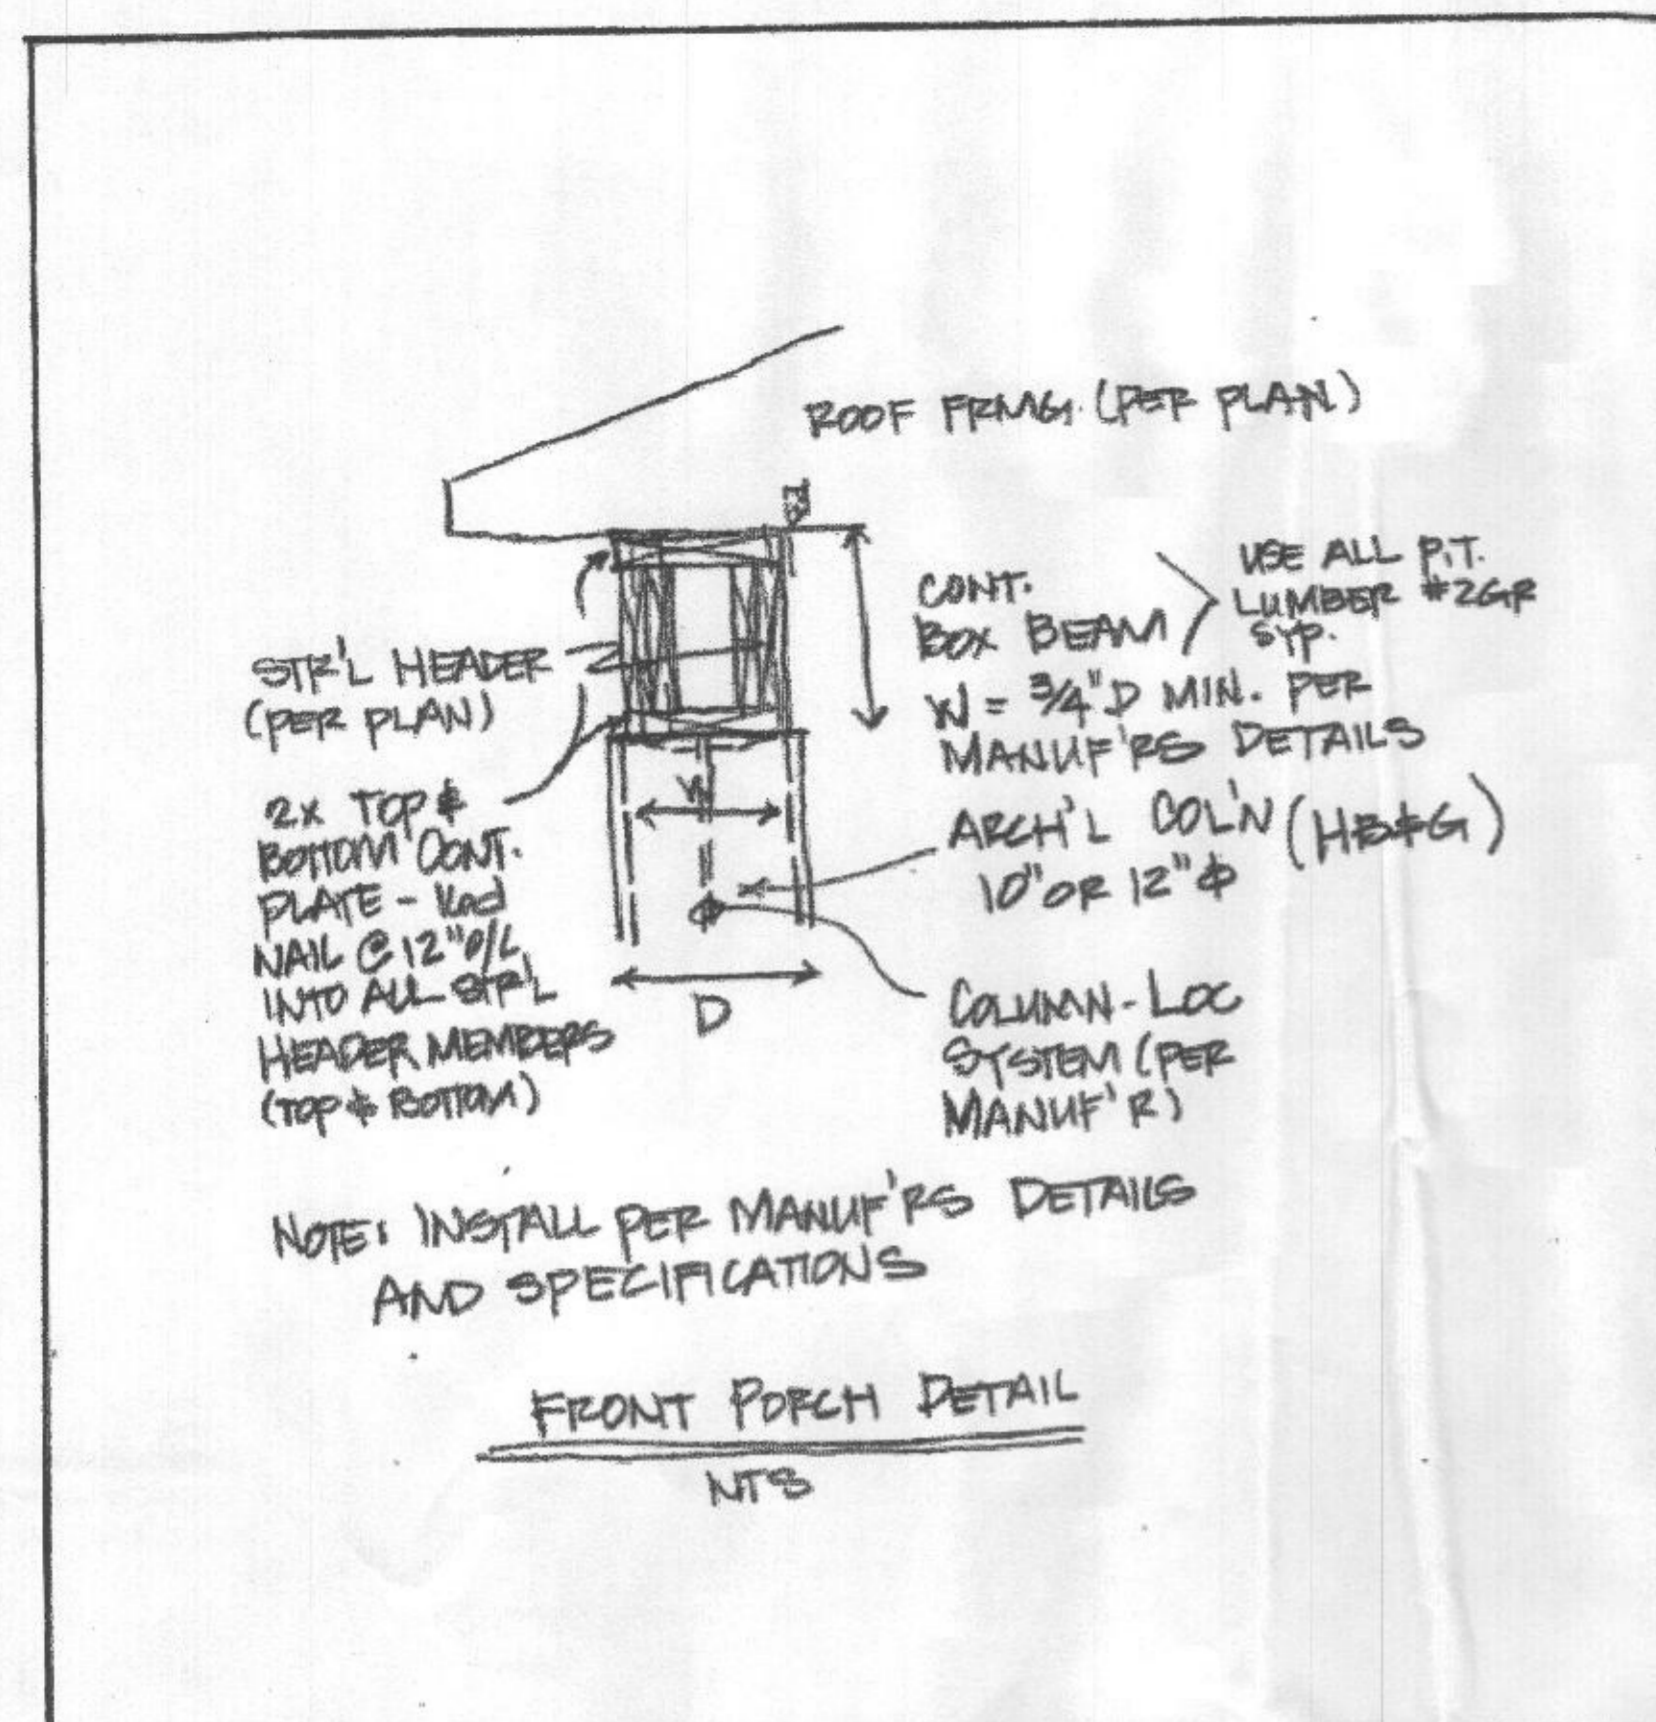 ROOF FRMG. (PER PLAN)
CONT.
BOX BEAM
USE ALL P.T.
LUMBER #2GR
SYP.
W = 3/4"D MIN. PER
MANUF'RS DETAILS
STR'L HEADER
(PER PLAN)
2x TOP &
BOTTOM CONT.
PLATE - 16d
NAIL @ 12" O/C
INTO ALL STR'L
HEADER MEMBERS
(TOP & BOTTOM)
W
D
ARCH'L COL'N (HB&G)
10" OR 12" ϕ
COLUMN-LOC
SYSTEM (PER
MANUF'R)
NOTE: INSTALL PER MANUF'RS DETAILS
AND SPECIFICATIONS
FRONT PORCH DETAIL
NTS